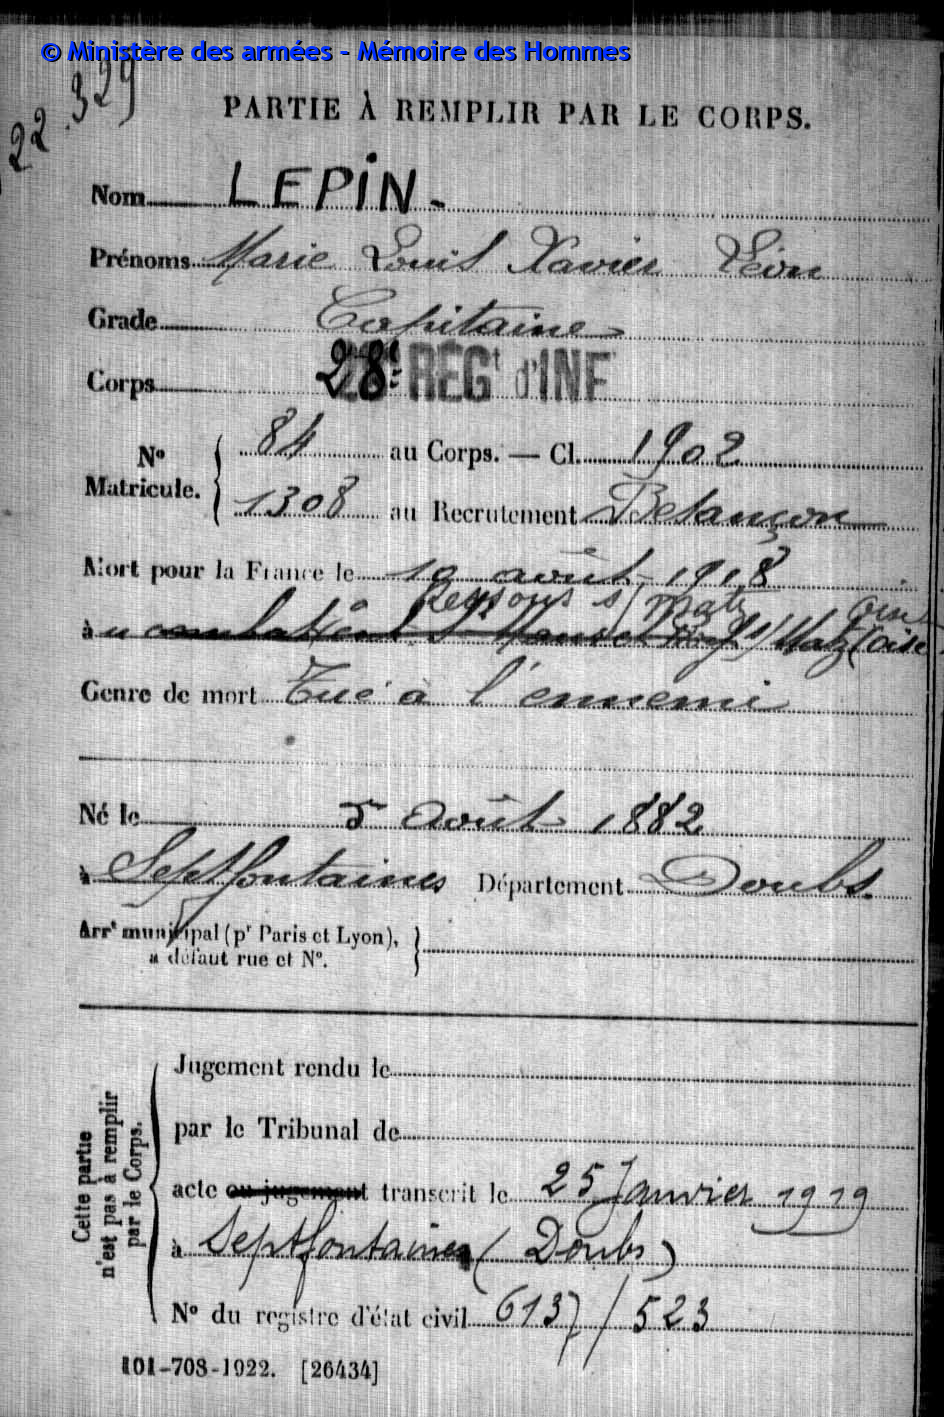 © Ministère des armées - Mémoire des Hommes
22.329
PARTIE À REMPLIR PAR LE CORPS.
Nom LEPIN -
Prénoms Marie Louis Xavier Léon
Grade Capitaine
Corps 28e RÉGt d'INF
No Matricule. { 84 au Corps. — Cl. 1902
1308 au Recrutement Besançon
Mort pour la France le 10 août 1918
Ressons s/ Matz Oise
à au combat s/ Matz (Oise
Genre de mort Tué à l'ennemi
Né le 5 Août 1882
à Septfontaines Département Doubs.
Arrt municipal (pr Paris et Lyon), }
à défaut rue et No.
Cette partie n'est pas à remplir par le Corps.
Jugement rendu le
par le Tribunal de
acte ou jugement transcrit le 25 Janvier 1919
à Septfontaines (Doubs)
No du registre d'état civil 6137/523
101-708-1922. [26434]